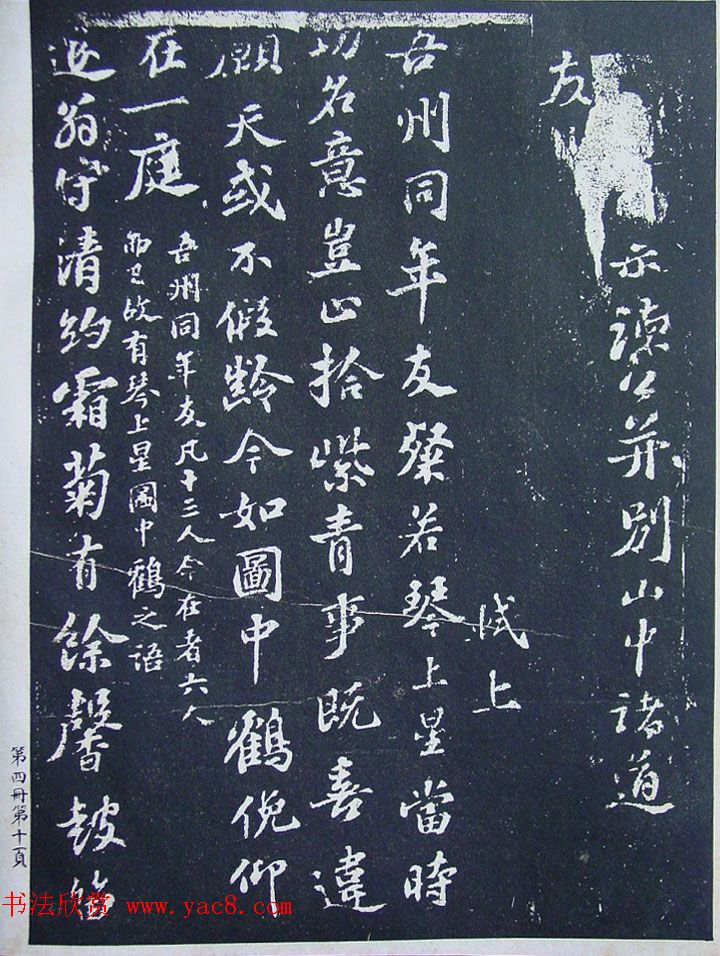 示讀公并別山中諸道
友
軾上
吾州同年友粲若琴上星當時
功名意豈止拾紫青事既喜違
願天或不假齡今如圖中鶴俛仰
在一庭
吾州同年友凡十三人今在者六人
而已故有琴上星圖中鶴之語
退翁守清約霜菊有餘馨鼓笛
第四冊第十一頁
书法欣赏 www.yac8.com